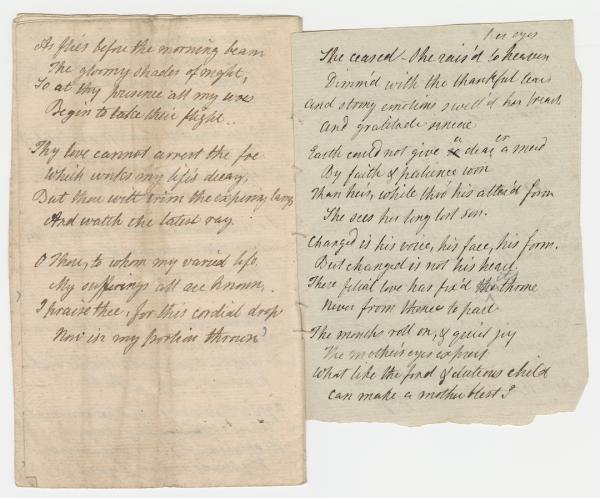 As flies before the morning beam
The gloomy shades of night,
So at thy presence all my woes
Begin to take their flight.
Thy love cannot arrest the foe
Which works my life's decay,
But thou wilt trim the expiring lamp
And watch the latest ray.
O Thou, to whom my varied life
My sufferings all are known,
I praise thee, for this cordial drop
Now in my portion thrown
her eyes
She ceased - She rais'd to heaven
Dimm'd with the thankful tears
And strong emotions swell'd her breast
And gratitude sincere
Earth could not give a dear er meed
By faith & patience won
Than her's, while thro' his alter'd form
She sees her long lost son.
Changed is his voice, his face, his form,
But changed is not his heart
There filial love has fix'd throne
Never from thence to part
The months roll on, & quiet joy
The mother's eyes exprest
What like the fond & duteous child
can make a mother blest?